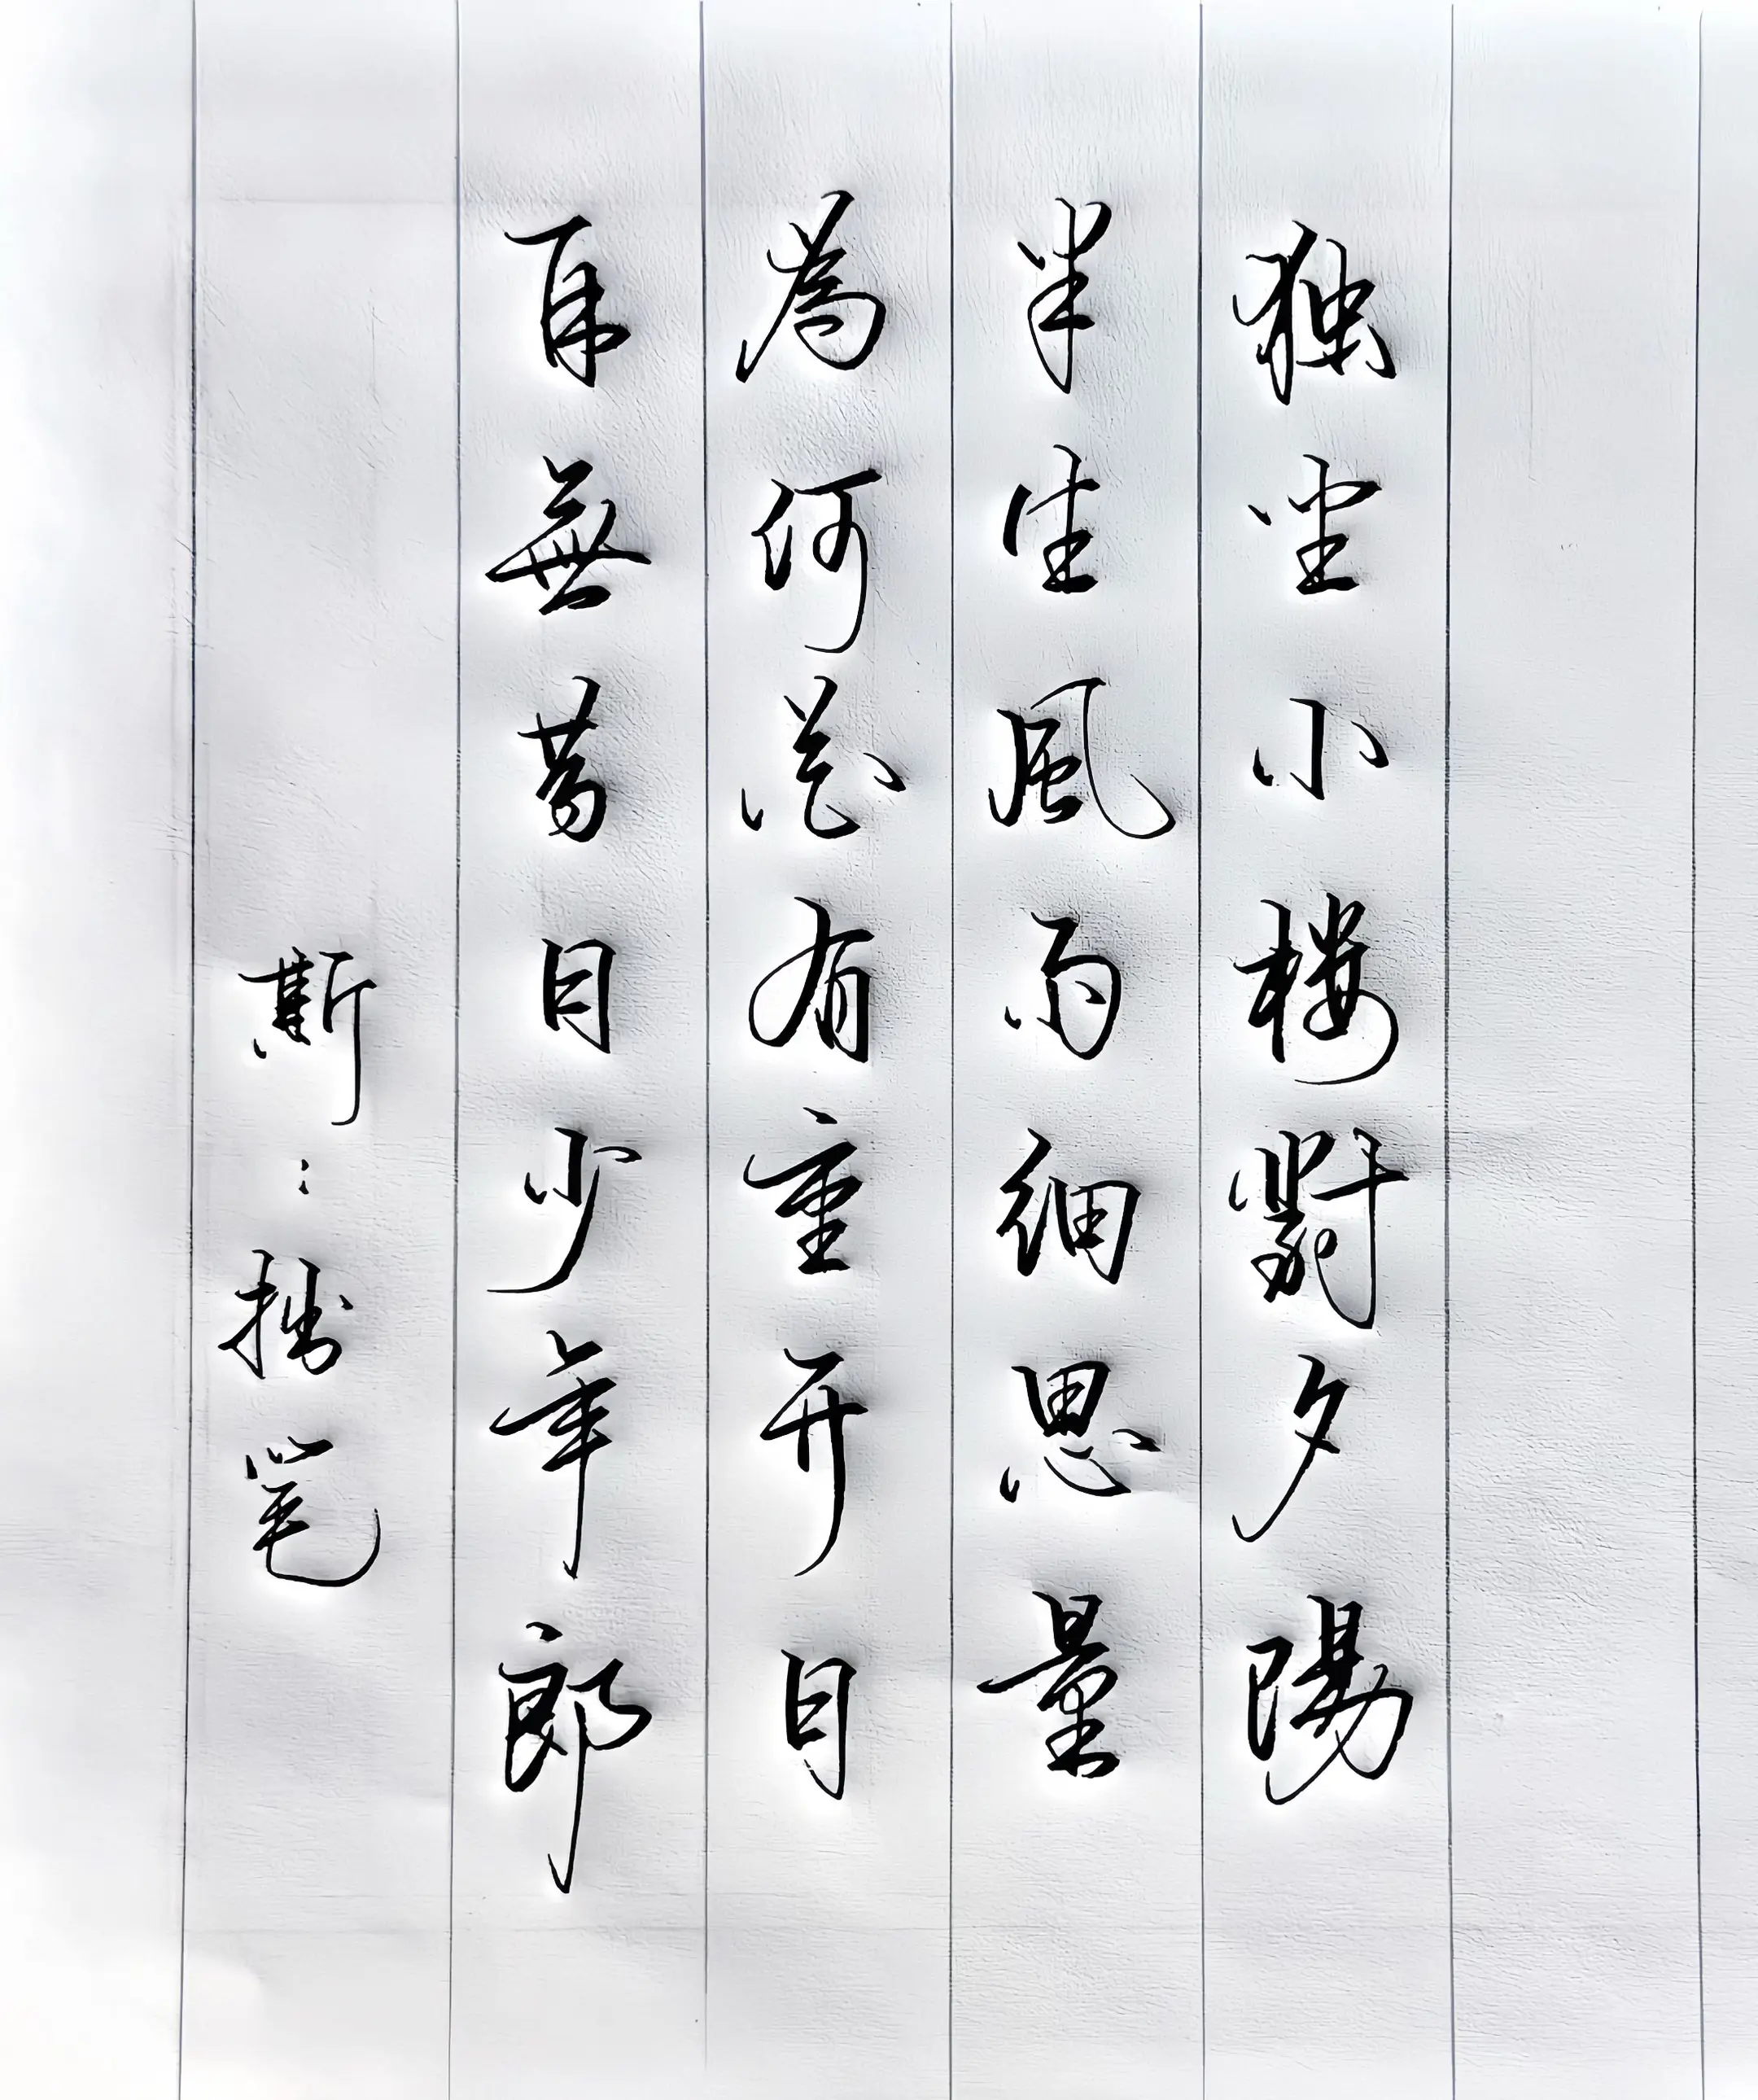 独坐小楼對夕陽
半生風雨细思量
為何花有重开日
再無昔日少年郎
斯:拙笔